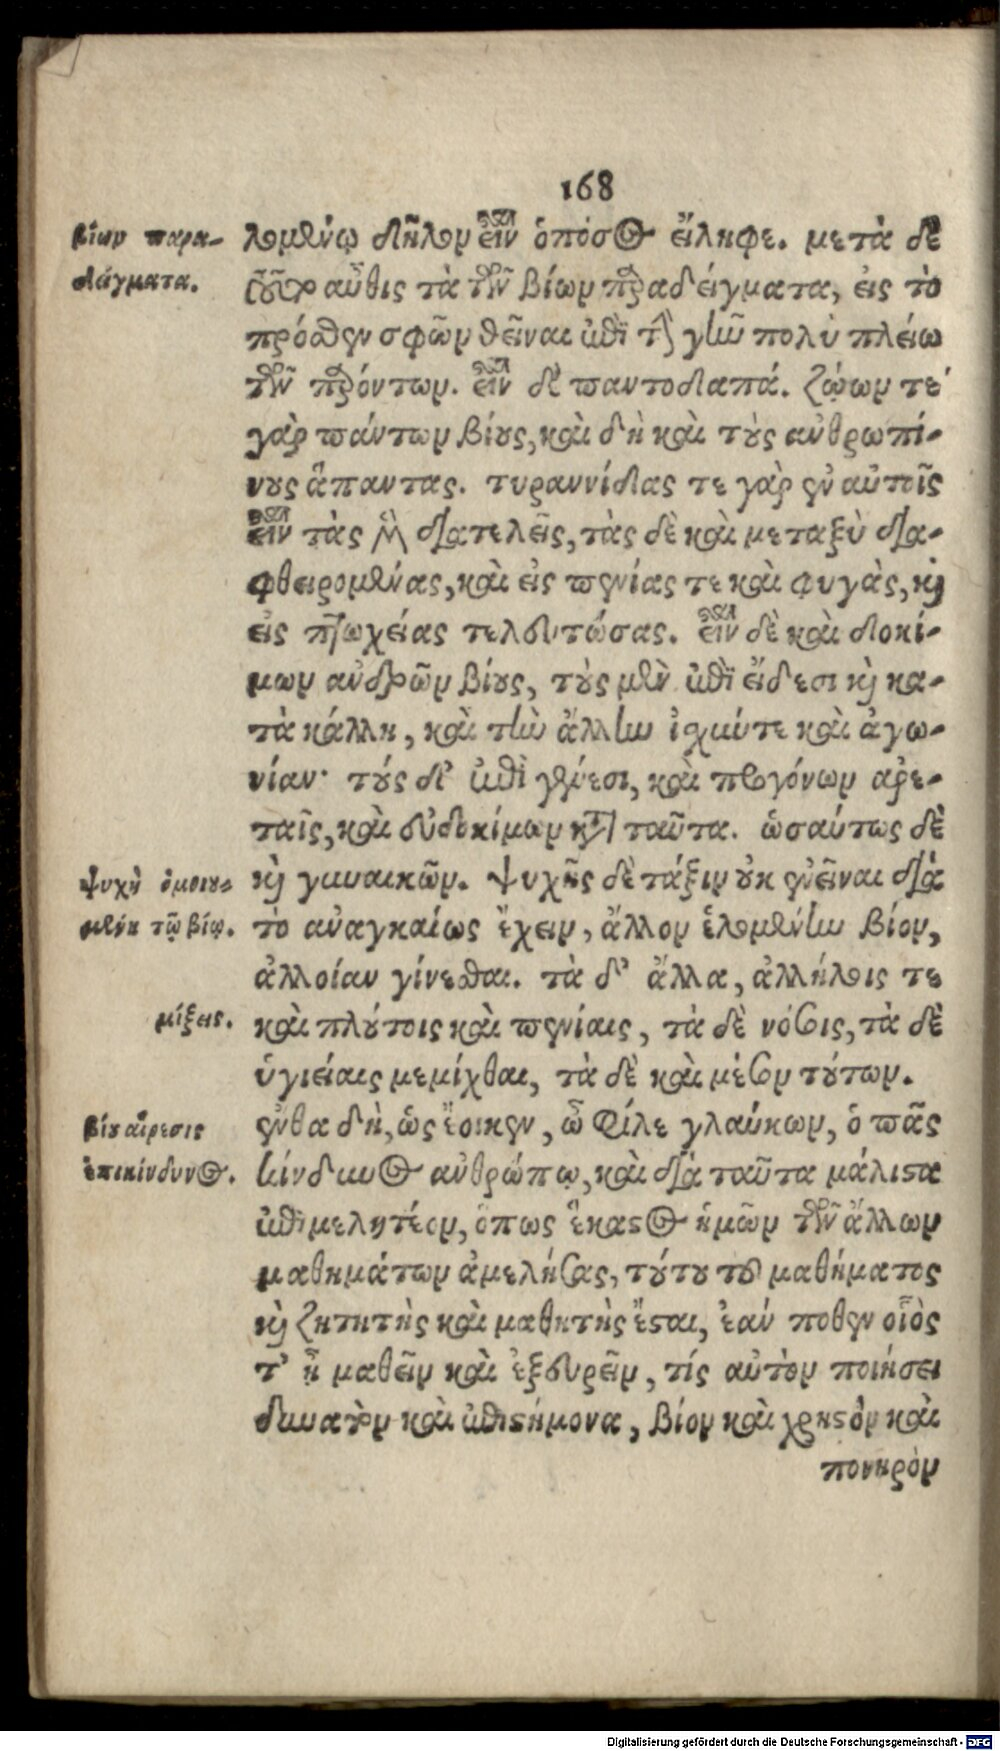 168
βίων παρα-
δείγματα.
λομένῳ δῆλον εἶναι ὁπόσος εἴληφε. μετὰ δὲ
τοῦτο αὖθις τὰ τῶν βίων παραδείγματα, εἰς τὸ
πρόσθεν σφῶν θεῖναι ἐπὶ τὴν γῆν πολὺ πλείω
τῶν παρόντων. εἶναι δὲ παντοδαπά. ζώων τε
γὰρ πάντων βίους, καὶ δὴ καὶ τοὺς ἀνθρωπί-
νους ἅπαντας. τυραννίδας τε γὰρ ἐν αὐτοῖς
εἶναι τὰς μὲν διατελεῖς, τὰς δὲ καὶ μεταξὺ δια-
φθειρομένας, καὶ εἰς πενίας τε καὶ φυγὰς, καὶ
εἰς πτωχείας τελευτώσας. εἶναι δὲ καὶ δοκί-
μων ἀνδρῶν βίους, τοὺς μὲν ἐπὶ εἴδεσι καὶ κα-
τὰ κάλλη, καὶ τὴν ἄλλην ἰσχύν τε καὶ ἀγω-
νίαν· τούς δ' ἐπὶ γένεσι, καὶ προγόνων ἀρε-
ταῖς, καὶ εὐδοκίμων κατὰ ταῦτα. ὡσαύτως δὲ
ψυχὴ ὁμοιου-
μένη τῷ βίῳ.
καὶ γυναικῶν. Ψυχῆς δὲ τάξιν οὐκ ἐνεῖναι διὰ
τὸ ἀναγκαίως ἔχειν, ἄλλον ἑλομένην βίον,
ἀλλοίαν γίνεσθαι. τὰ δ' ἄλλα, ἀλλήλοις τε
μίξεις.
καὶ πλούτοις καὶ πενίαις, τὰ δὲ νόσοις, τὰ δὲ
ὑγιείαις μεμίχθαι, τὰ δὲ καὶ μέσον τούτων.
βίου αἵρεσις
ἐπικίνδυνος.
ἔνθα δὴ, ὡς ἔοικεν, ὦ Φίλε γλαύκων, ὁ πᾶς
κίνδυνος ἀνθρώπῳ, καὶ διὰ ταῦτα μάλιστα
ἐπιμελητέον, ὅπως ἕκαστος ἡμῶν τῶν ἄλλων
μαθημάτων ἀμελήσας, τούτου τοῦ μαθήματος
καὶ ζητητὴς καὶ μαθητὴς ἔσται, ἐάν ποθεν οἷὸς
τ' ᾖ μαθεῖν καὶ ἐξευρεῖν, τίς αὐτὸν ποιήσει
δυνατὸν καὶ ἐπιστήμονα, βίον καὶ χρηστὸν καὶ
πονηρὸν
Digitalisierung gefördert durch die Deutsche Forschungsgemeinschaft - DFG